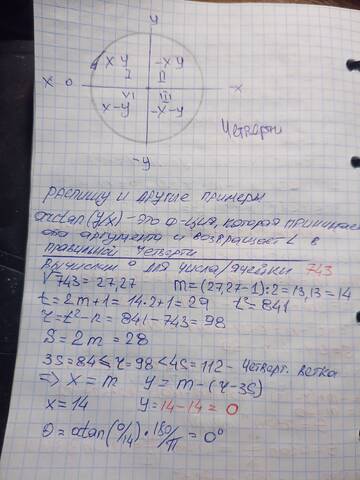 y
x y
-x y
I
II
x 0
-x
VI
III
x -y
-x -y
Четверти
-y
распишу и другие примеры
arctan(y,x) - это ф-ция, которая принимает
два аргумента и возвращает ∠ в
правильной четверти
Вычислим ° для числа/ячейки 743
√743 = 27,27 m = (27,27-1):2 = 13,13 = 14
t = 2m+1 = 14·2+1 = 29 t² = 841
r = t² - n = 841 - 743 = 98
S = 2m = 28
3S = 84 ≤ r = 98 < 4S = 112 - четверт. ветка
⇒ x = m y = m - (r - 3S)
x = 14 y = 14 - 14 = 0
θ = atan(0/14) · 180/π = 0°